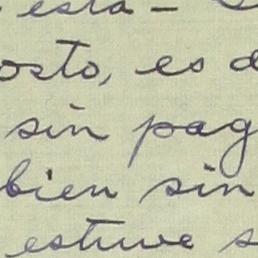 esta -
osto, es d
sin pag
bien sin
estuve s